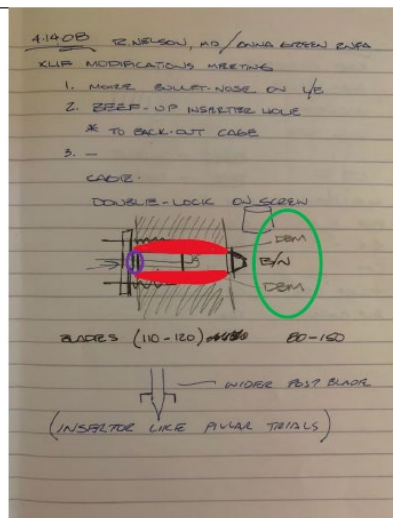 4.1408 R. NELSON, MD / ANNA GREEN RNFA
XLIF MODIFICATIONS MEETING
1. MORE BULLET-NOSE ON L/E
2. BEEF-UP INSERTER HOLE
* TO BACK-OUT CAGE
3. —
CADR.
DOUBLE-LOCK ON SCREW
DBM
B/N
DBM
BLADES (110-120) 80-150
WIDER POST BLADE
(INSERTOR LIKE PILLAR TRIALS)